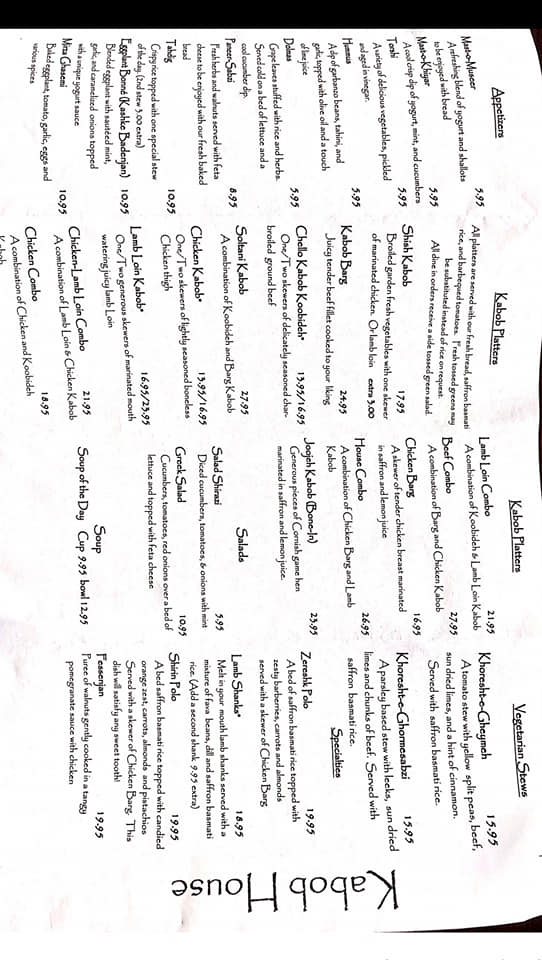 Kabob House
Appetizers
Masto-Museer 5.95
A refreshing blend of yogurt and shallots
to be enjoyed with bread
Mast-o-Khiyar 5.95
A cool crisp dip of yogurt, mint, and cucumbers
Torshi 5.95
A variety of delicious vegetables, pickled
and aged in vinegar.
Hummus 5.95
A dip of garbanzo beans, tahini, and
garlic, topped with olive oil and a touch
of lime juice
Dolmas 5.95
Grape leaves stuffed with rice and herbs.
Served cold on a bed of lettuce and a
cool cucumber dip.
Paneer-Sabzi 8.95
Fresh herbs and walnuts served with feta
cheese to be enjoyed with our fresh baked
bread
Tahdig 10.95
Crispy rice topped with one special stew
of the day. (2nd stew 3.00 extra)
Eggplant Borani (Kashke Bademjan) 10.95
Blended eggplant with sautéed mint,
garlic, and caramelized onions topped
with a unique yogurt sauce
Mirza Ghasemi 10.95
Baked eggplant, tomato, garlic, eggs and
various spices
Kabob Platters
All platters are served with our fresh bread, saffron basmati
rice, and barbequed tomatoes. Fresh tossed greens may
be substituted instead of rice on request.
All dine in orders receive a side tossed green salad.
Shish Kabob 17.95
Broiled garden fresh vegetables with one skewer
of marinated chicken. Or lamb loin extra 3.00
Kabob Barg 24.95
Juicy tender beef fillet cooked to your liking
Chello Kabob Koobideh* 13.95/16.95
One/Two skewers of delicately seasoned char-
broiled ground beef
Soltani Kabob 27.95
A combination of Koobideh and Barg Kabob
Chicken Kabob* 13.95/16.95
One/Two skewers of lightly seasoned boneless
Chicken thigh
Lamb Loin Kabob* 16.95/23.95
One/Two generous skewers of marinated mouth
watering juicy lamb Loin
Chicken-Lamb Loin Combo 21.95
A combination of Lamb Loin & Chicken Kabob
Chicken Combo 18.95
A combination of Chicken and Koobideh
Kabob
Kabob Platters
Lamb Loin Combo 21.95
A combination of Koobideh & Lamb Loin Kabob
Beef Combo 27.95
A combination of Barg and Chicken Kabob
Chicken Barg 16.95
A skewer of tender chicken breast marinated
in saffron and lemon juice
House Combo 26.95
A combination of Chicken Barg and Lamb
Kabob
Joojeh Kabob (Bone-In) 23.95
Generous pieces of Cornish game hen
marinated in saffron and lemon juice.
Salads
Salad Shirazi 5.95
Diced cucumbers, tomatoes, & onions with mint
Greek Salad 10.95
Cucumbers, tomatoes, red onions over a bed of
lettuce and topped with feta cheese
Soup
Soup of the Day Cup 9.95 bowl 12.95
Vegetarian Stews
Khoresht-e-Gheymeh 15.95
A tomato stew with yellow split peas, beef,
sun dried limes, and a hint of cinnamon.
Served with saffron basmati rice.
Khoresht-e-Ghormesabzi 15.95
A parsley based stew with leeks, sun dried
limes and chunks of beef. Served with
saffron basmati rice.
Specialties
Zereshk Polo 19.95
A bed of saffron basmati rice topped with
zesty barberries, carrots and almonds
served with a skewer of Chicken Barg
Lamb Shanks* 18.95
Melt in your mouth lamb shanks served with a
mixture of fava beans, dill and saffron basmati
rice. (Add a second shank 9.95 extra)
Shirin Polo 19.95
A bed saffron basmati rice topped with candied
orange zest, carrots, almonds and pistachios
Served with a skewer of Chicken Barg. This
dish will satisfy any sweet tooth!
Fesenjan 19.95
Puree of walnuts gently cooked in a tangy
pomegranate sauce with chicken